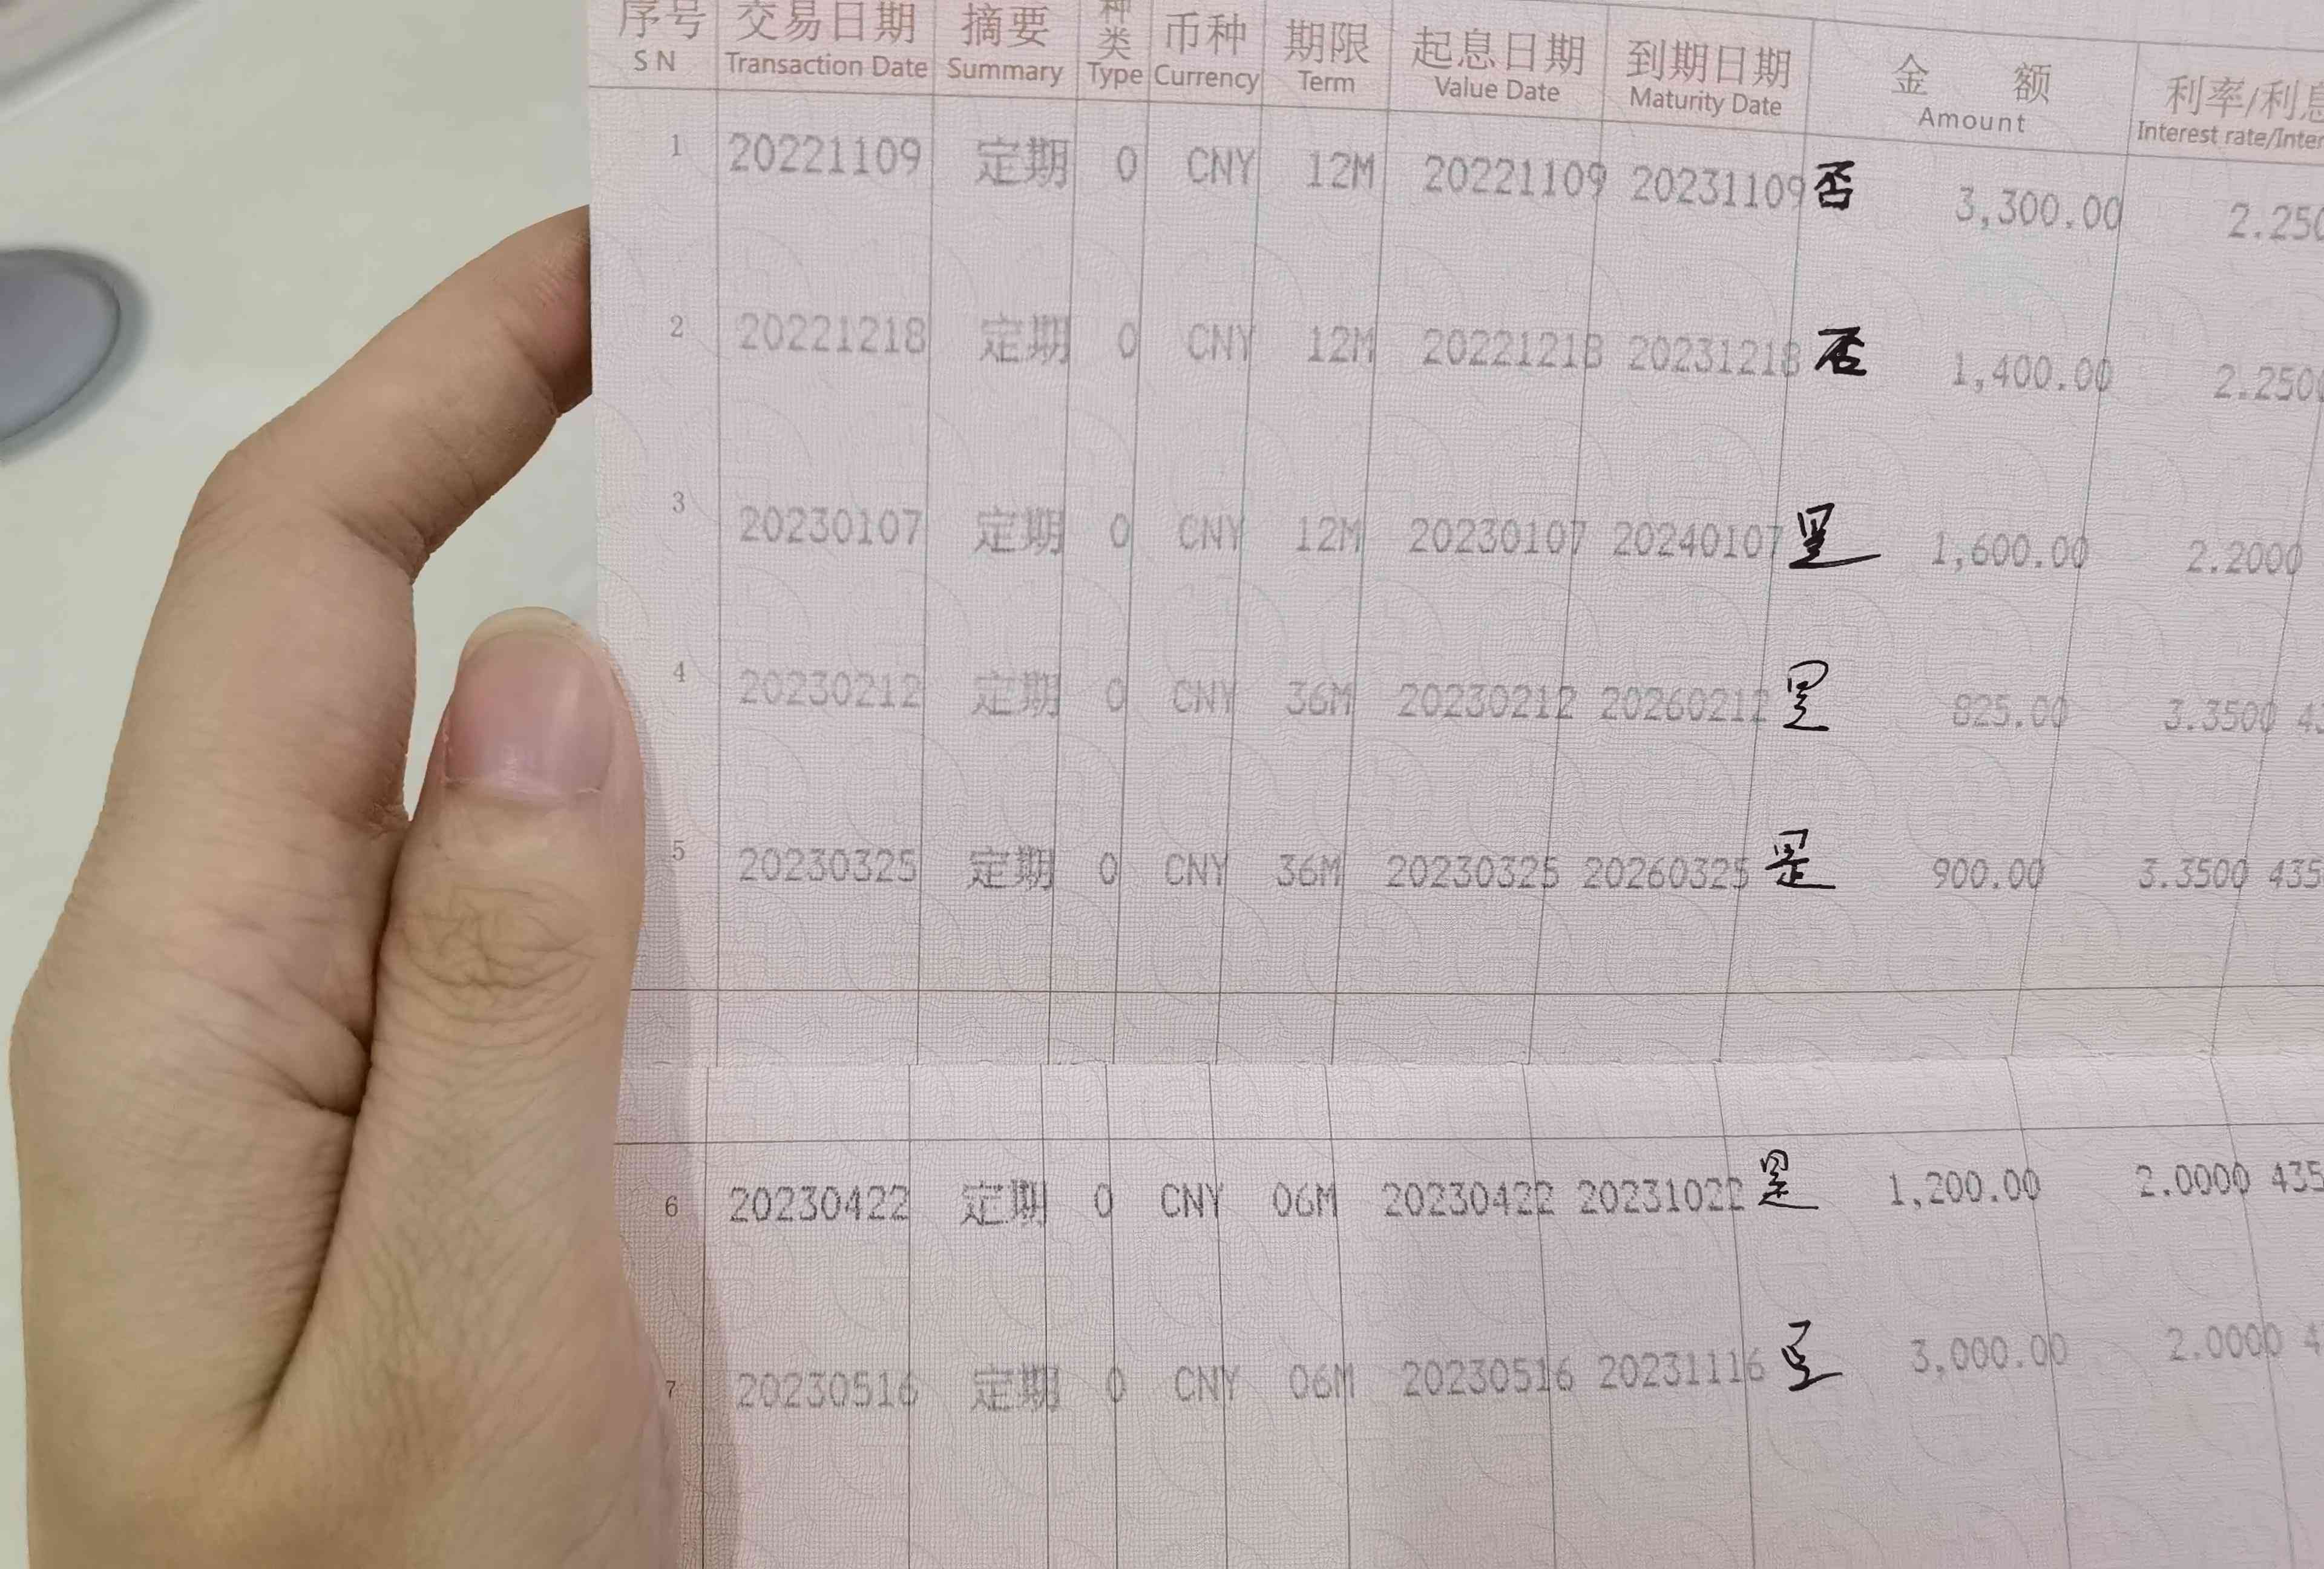 序号 交易日期 摘要 种类 币种 期限 起息日期 到期日期 金 额 利率/利息
S N Transaction Date Summary Type Currency Term Value Date Maturity Date Amount Interest rate/Inter
1 20221109 定期 0 CNY 12M 20221109 20231109 否 3,300.00 2.250
2 20221218 定期 0 CNY 12M 20221218 20231218 否 1,400.00 2.2500
3 20230107 定期 0 CNY 12M 20230107 20240107 是 1,600.00 2.2000
4 20230212 定期 0 CNY 36M 20230212 20260212 是 825.00 3.3500 43
5 20230325 定期 0 CNY 36M 20230325 20260325 是 900.00 3.3500 435
6 20230422 定期 0 CNY 06M 20230422 20231022 是 1,200.00 2.0000 435
7 20230516 定期 0 CNY 06M 20230516 20231116 是 3,000.00 2.0000 4